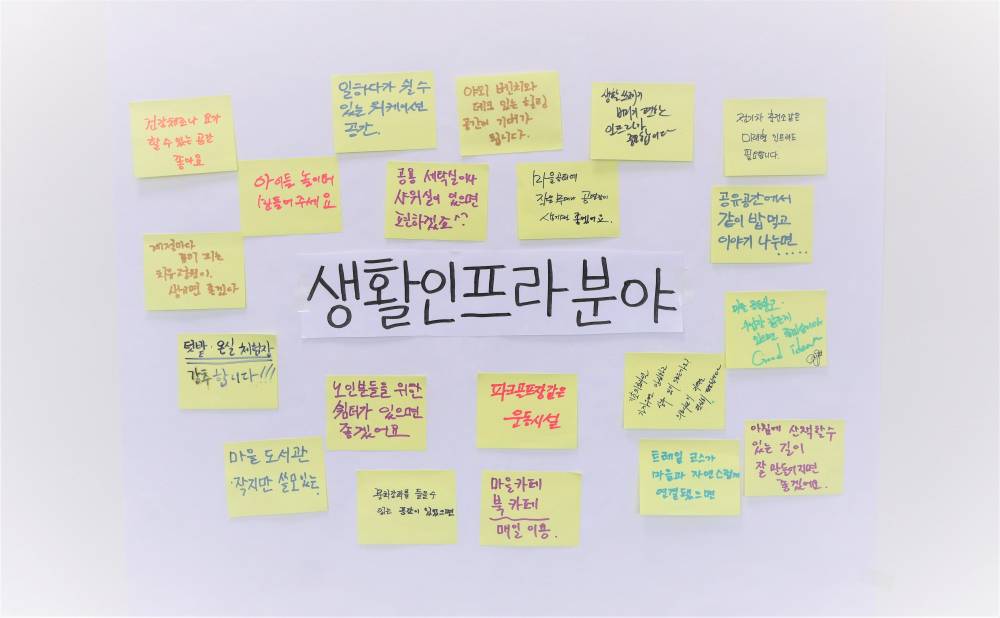 건강체조나 요가
할 수 있는 공간
좋아요
일하다가 쉴 수
있는 워케이션
공간.
야외 벤치와
데크 있는 힐링
공간이 기대가
됩니다.
생활 쓰레기
버리기 편한
인프라가
필요합니다
전기차 충전소같은
미래형 인프라도
필요합니다.
아이들 놀이터
만들어주세요
공용 세탁실이나
샤워실이 있으면
편하겠죠^^?
마을공터에
작은
생기면 좋겠어요.
공유공간에서
같이 밥 먹고
이야기 나누면.....
계절마다
꽃이 피는
치유정원이.
생기면 좋겠다
생활인프라 분야
마을
있으면
Good idea
텃밭·온실 체험장
강추합니다!!!
노인분들을 위한
쉼터가 있으면
좋겠어요
파크골프장같은
운동시설
아침에 산책할 수
있는 길이
잘 만들어지면
좋겠어요.
마을 도서관
작지만 쓸모있는.
트레일 코스가
마을과 자연스럽게
연결됐으면
들을 수
있는 공간이 있었으면
마을카페
북 카페
매일 이용.